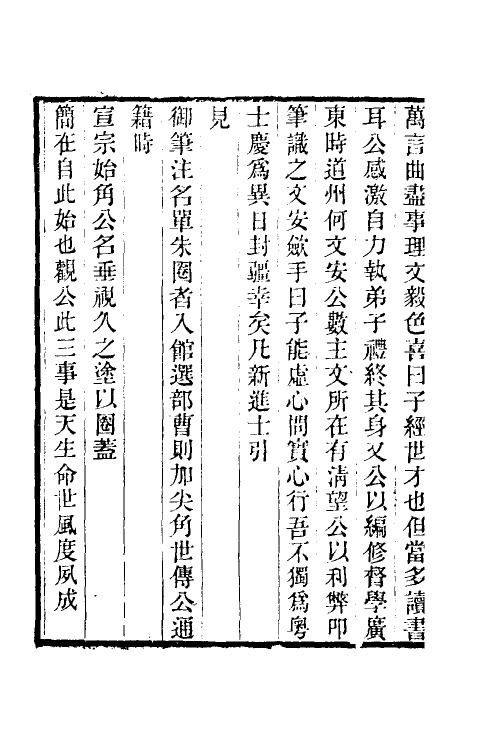 萬言曲盡事理文毅色喜曰子經世才也但當多讀書
耳公感激自力執弟子禮終其身又公以編修督學廣
東時道州何文安公數主文所在有淸望公以利弊叩
筆識之文安斂手曰子能虛心問實心行吾不獨爲粵
士慶爲異日封疆幸矣凡新進士引
見
御筆注名單朱圈者入館選部曹則加尖角世傳公通
籍時
宣宗始角公名垂視久之塗以圈蓋
簡在自此始也觀公此三事是天生命世風度夙成